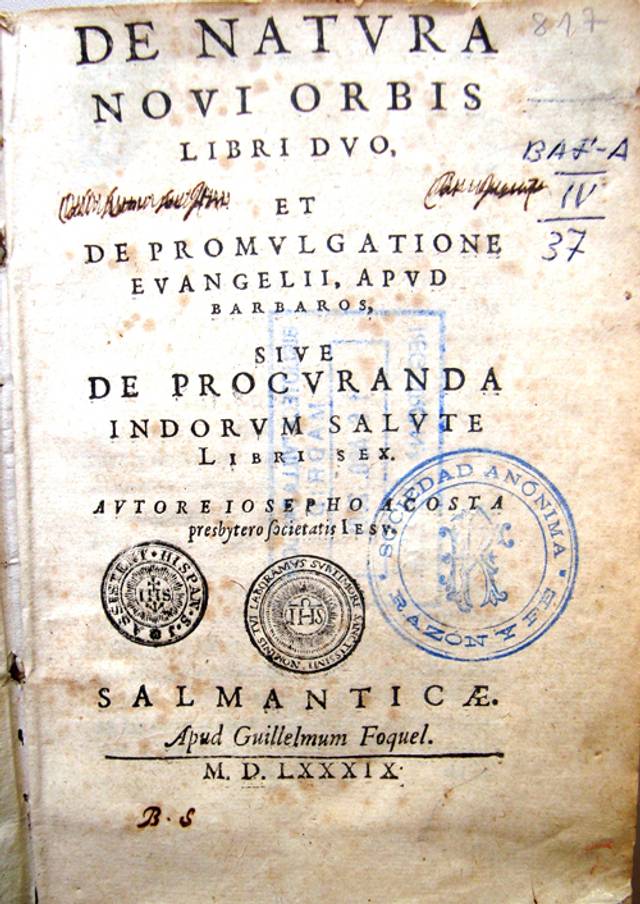 817
DE NATVRA
NOVI ORBIS
LIBRI DVO,
BAF-A
IV
37
ET
DE PROMVLGATIONE
EVANGELII, APVD
BARBAROS,
SIVE
DE PROCVRANDA
INDORVM SALVTE
LIBRI SEX.
AVTORE IOSEPHO ACOSTA
presbytero societatis IESV.
SOCIEDAD ANÓNIMA
RAZÓN Y FE
ASSISTENT · HISPAN · S · J ·
IHS
NOMINIS TVI LABORAMVS SVB TIMORE SANCTISSIMI
IHS
SALMANTICÆ.
Apud Guillelmum Foquel.
M. D. LXXXIX
B. S